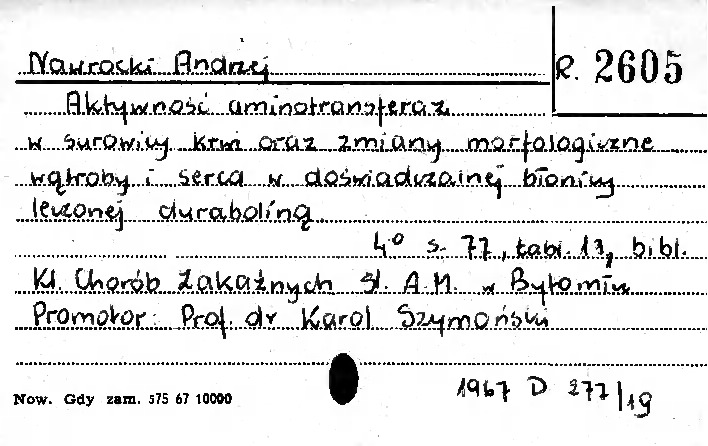 Nawrocki Andrzej
R. 2605
Aktywność aminotransferaz
w surowicy krwi oraz zmiany morfologiczne
wątroby i serca w doświadczalnej błonicy
leczonej duraboliną
4° s. 77, tabl. 13, bibl.
Kl. Chorób Zakaźnych Śl. A.M. w Bytomiu
Promotor: Prof. dr Karol Szymoński
Now. Gdy zam. 575 67 10000
1967 D 277/19